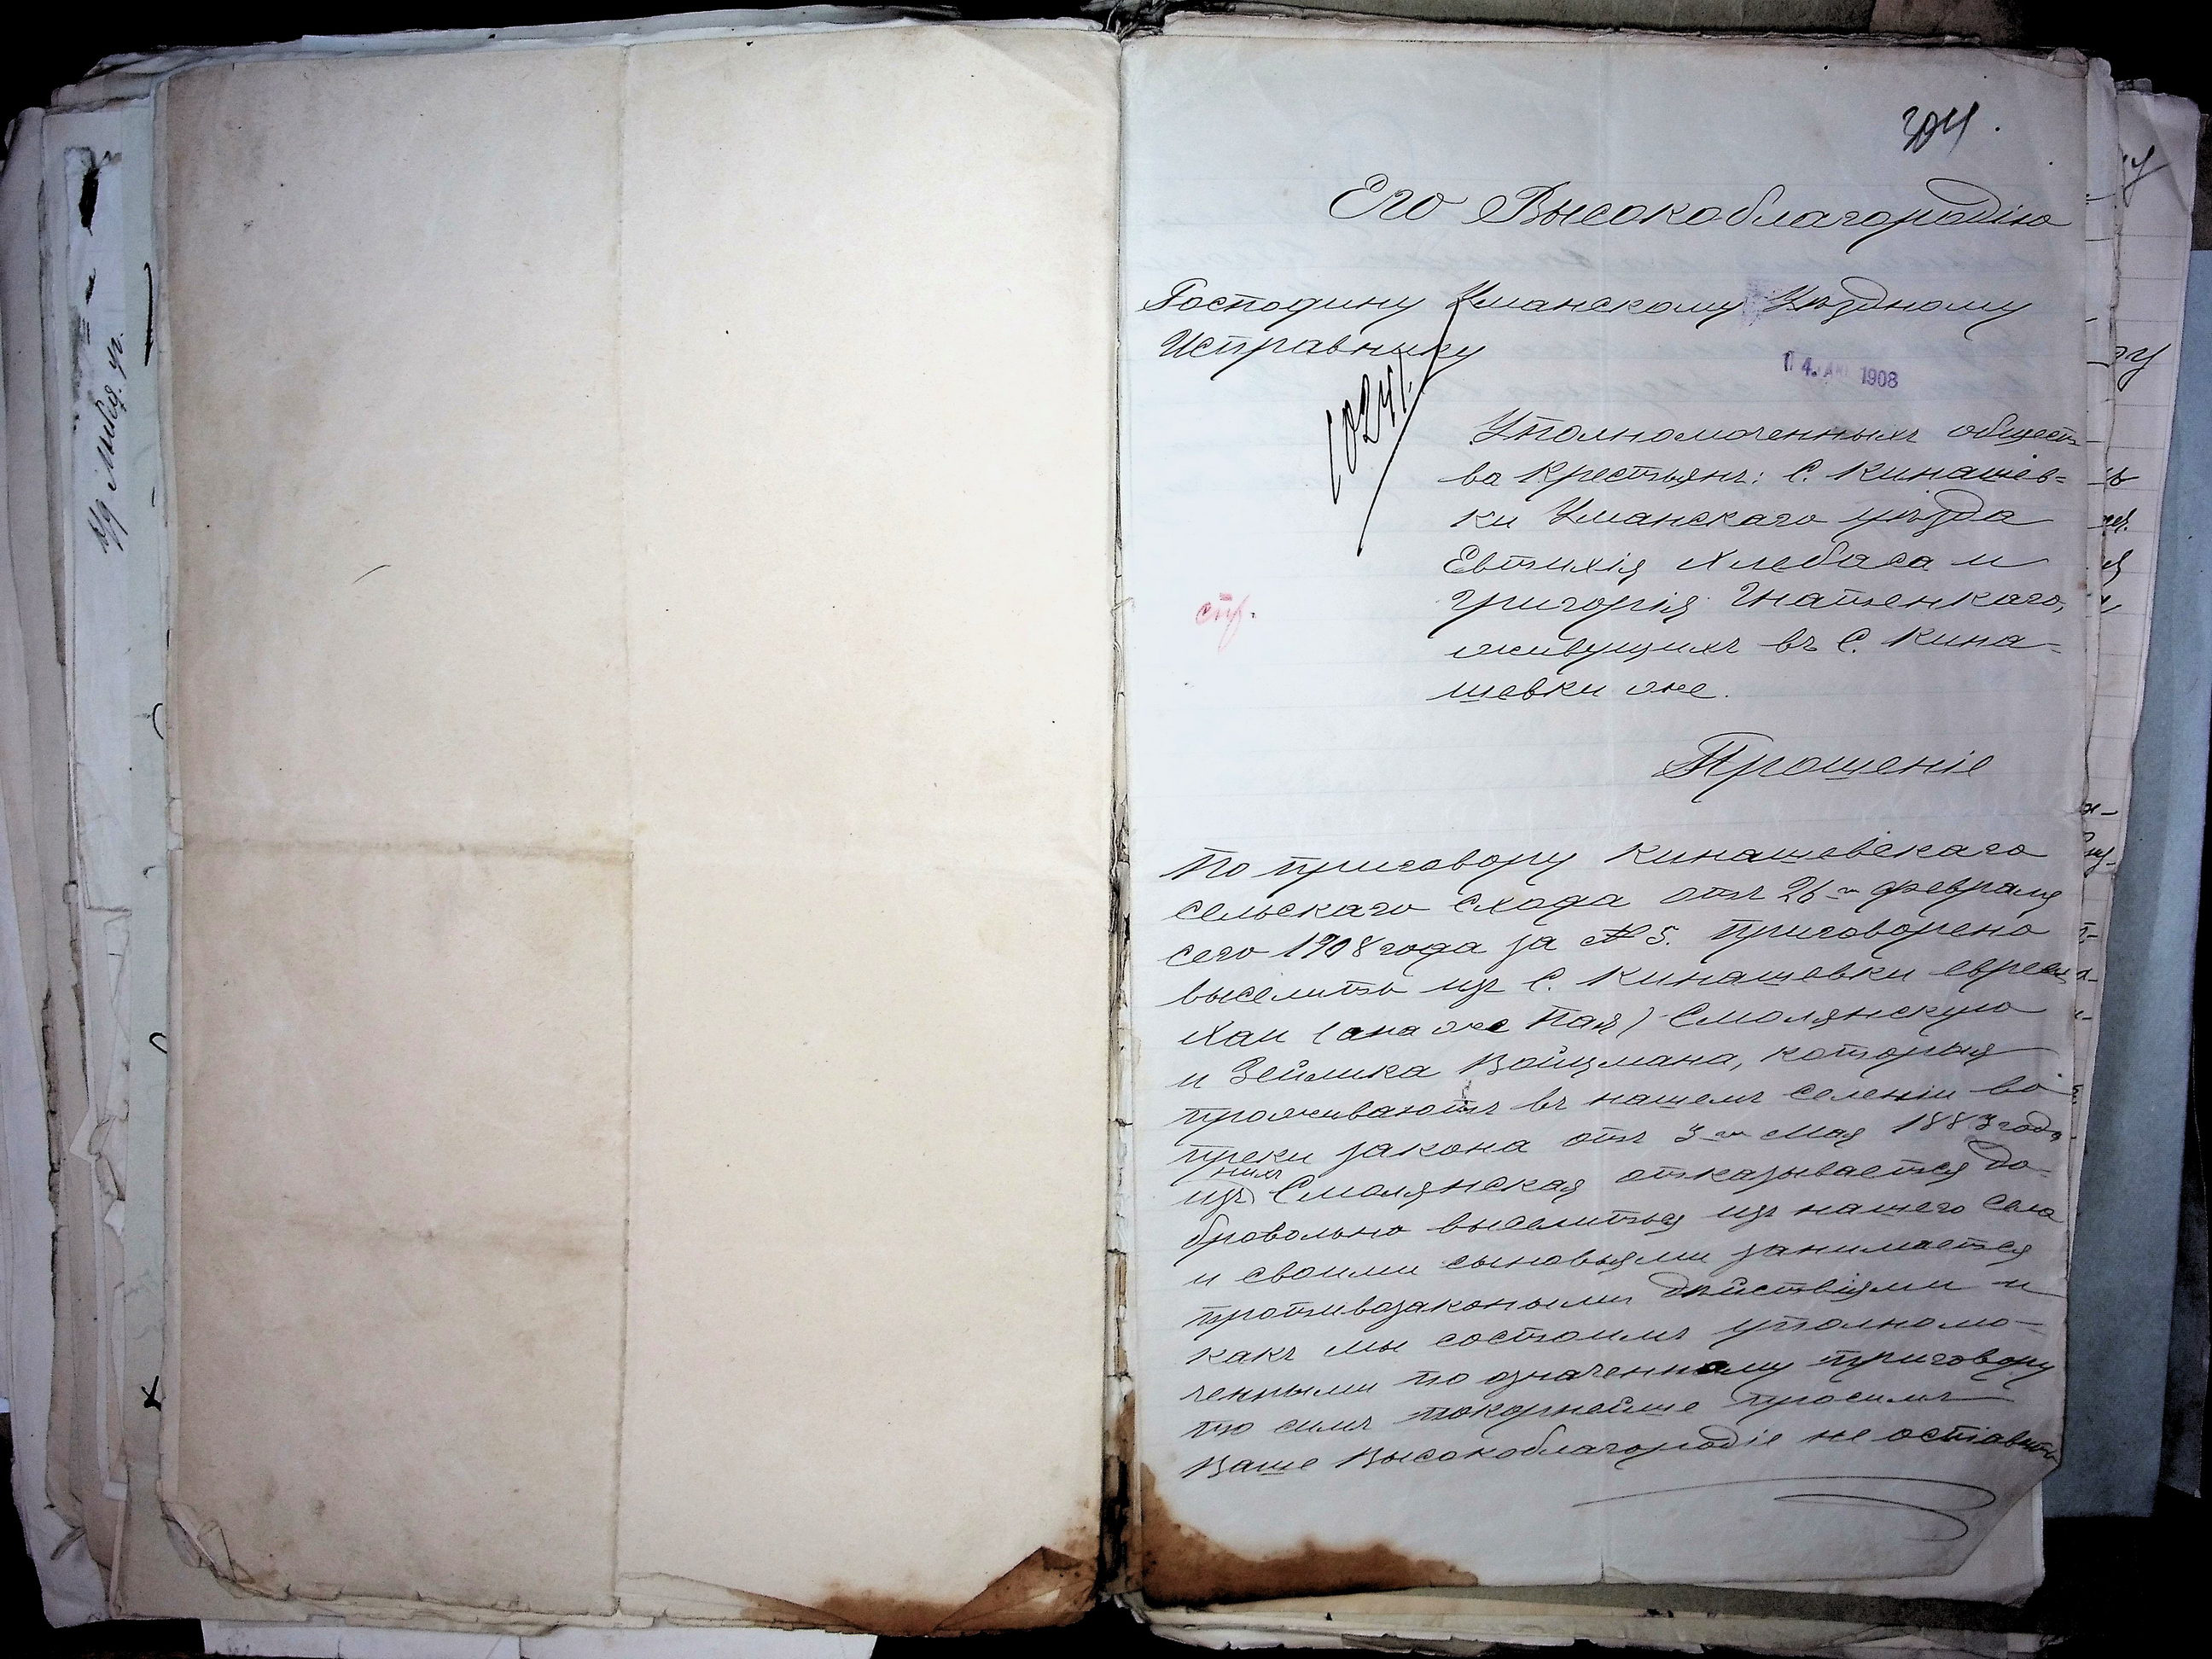 304.
Его Высокоблагородію
Господину Уманскому Уѣздному
Исправнику
1908
10241.
Уполномоченныхъ общест-
ва крестьянъ: С. Кинашев=
ки Уманскаго уѣзда
Евтихія Хлебаса и
Григорія Гнатенкаго,
живущихъ въ С. Кина-
шевки же.
стр.
Прошеніе
По приговору Кинашевскаго
сельскаго схода отъ 26-го февраля
сего 1908 года за № 5. приговорено
выселить изъ С. Кинашевки евреевъ
Хаи (она же Пая) Смолянскую
и Зейлика Войцмана, которыя
проживаютъ въ нашемъ селеніи во
преки закона отъ 3-го Мая 1883 года
изъ нихъ Смолянская отказывается до-
бровольно выселиться изъ нашего села
и своими сыновьями занимается
противозаконными дѣйствіями и
какъ мы состоимъ уполномо-
ченными по означенному приговору
то симъ покорнейше просимъ
Ваше Высокоблагородіе не оставить